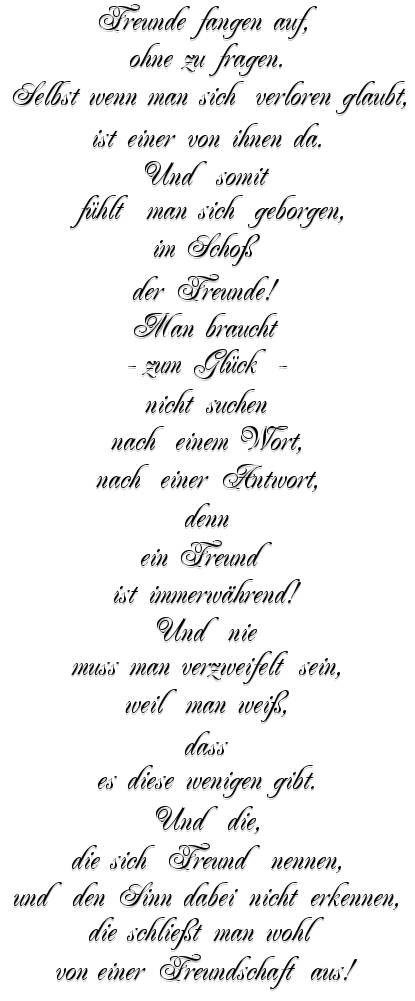 Freunde fangen auf,
ohne zu fragen.
Selbst wenn man sich verloren glaubt,
ist einer von ihnen da.
Und somit
fühlt man sich geborgen,
im Schoß
der Freunde!
Man braucht
- zum Glück -
nicht suchen
nach einem Wort,
nach einer Antwort,
denn
ein Freund
ist immerwährend!
Und nie
muss man verzweifelt sein,
weil man weiß,
dass
es diese wenigen gibt.
Und die,
die sich Freund nennen,
und den Sinn dabei nicht erkennen,
die schließt man wohl
von einer Freundschaft aus!